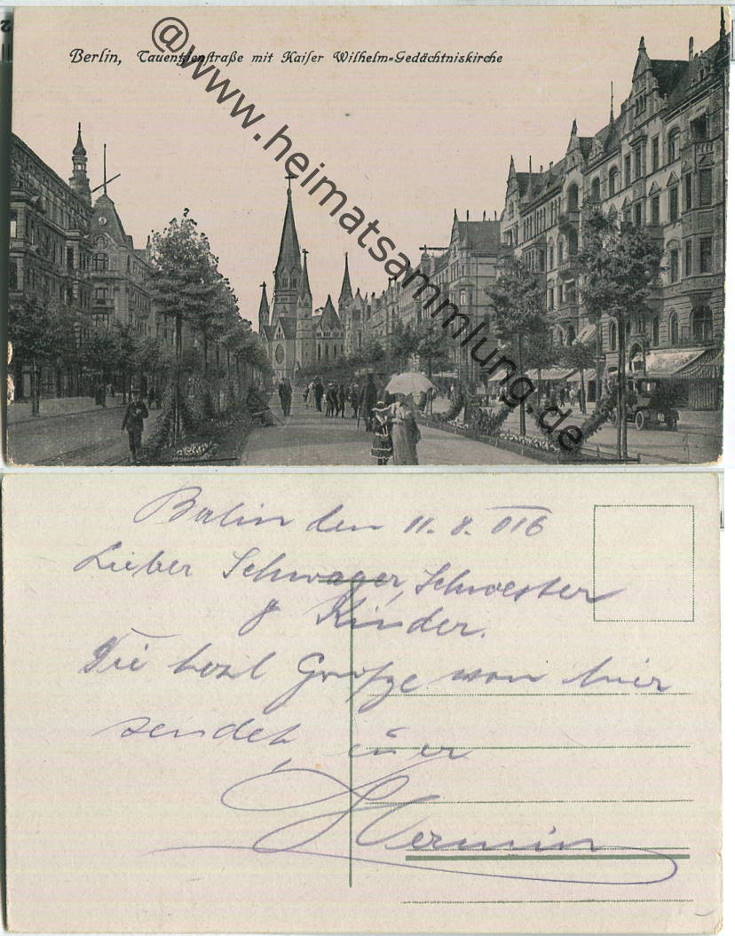 Berlin, Tauentzienstraße mit Kaiser Wilhelm-Gedächtniskirche
@www.heimatsammlung.de
Berlin den 11. 8. 016
Lieber Schwager, Schwester
& Kinder.
Die herzl Grüße von hier
sendet euer
Hermin